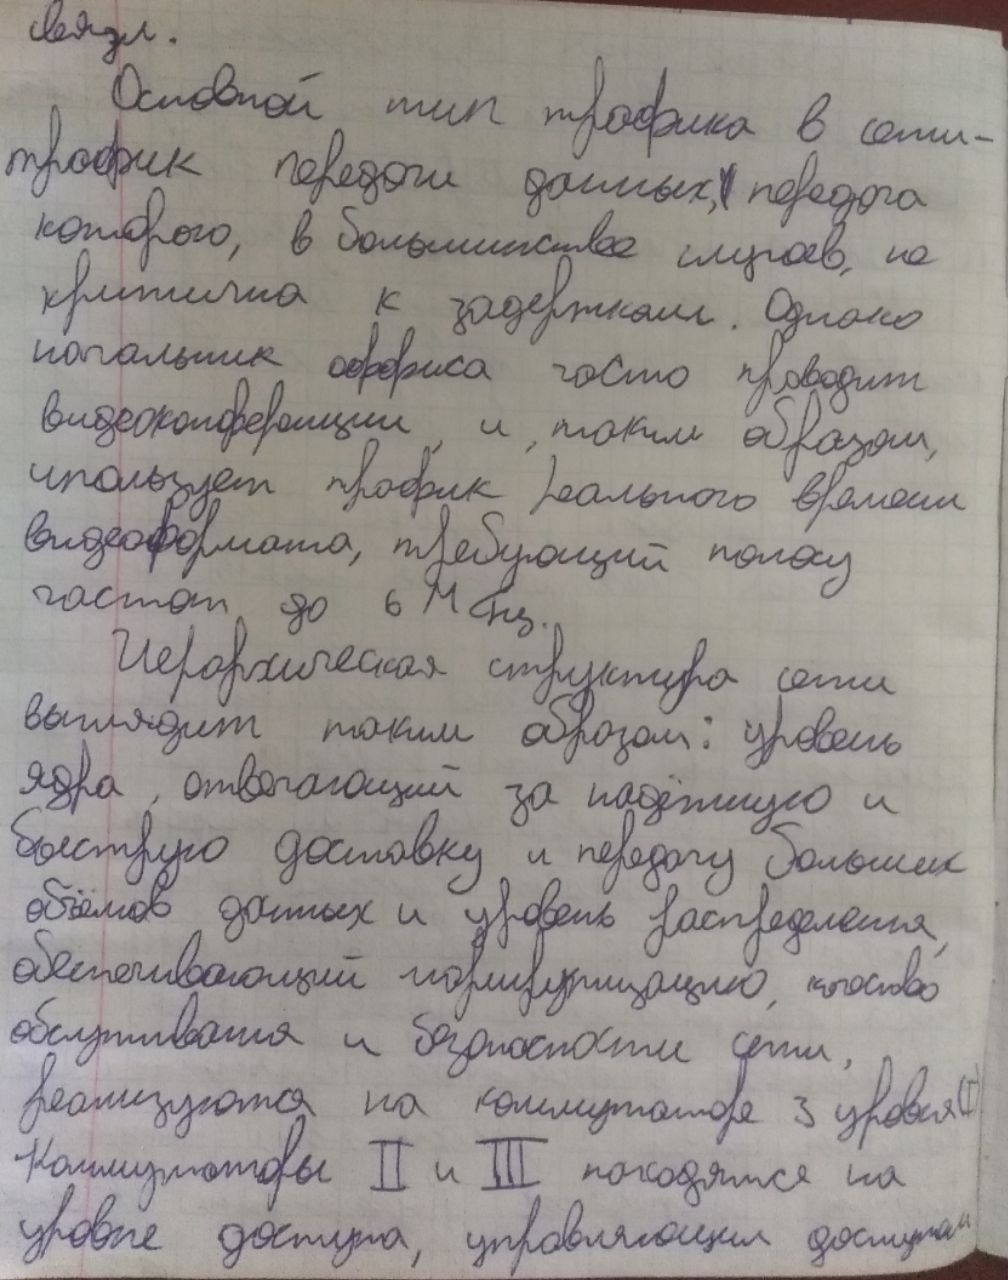 связи.
Основной тип трафика в сети-
трафик передачи данных, передача
которого, в большинстве случаев, не
критична к задержкам. Однако
начальник оффиса часто проводит
видеоконференции, и, таким образом,
использует трафик реального времени
видеоформата, требующий полосу
частот до 6 МГц.
Иерархическая структура сети
выглядит таким образом: уровень
ядра, отвечающий за надёжную и
быструю доставку и передачу больших
объёмов данных и уровень распределения,
обеспечивающий маршрутизацию, качество
обслуживания и безопасности сети,
реализуются на коммутаторе 3 уровня (I)
Коммутаторы II и III находятся на
уровне доступа, управляющим доступом